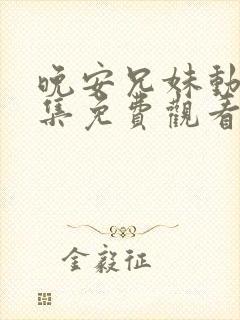 晚安兄妹動
集免費觀看
金毅征